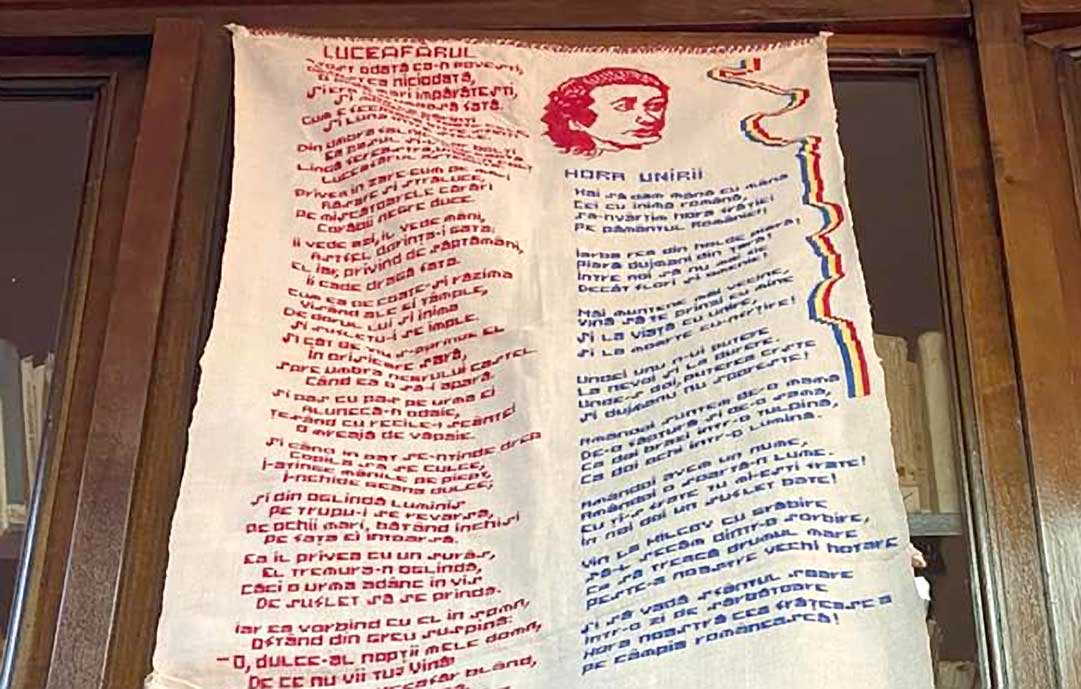 LUCEAFARUL
A fost odată ca-n povești,
A fost ca niciodată,
împărătești,
fată.

Din umbra
Lîngă
Luceafărul
Privea în zare cum pe mări
Răsare și străluce,
Pe mișcătoarele cărări
Corăbii negre duce.
îl vede azi, îl vede mâni,
Astfel dorința-i gata;
El iar, privind de săptămâni,
îi cade dragă fata.
Cum ea pe coate-și răzima
Visând ale ei tâmple,
De dorul lui și inima
Și sufletu-i se împle.
Și cât de viu s-aprinde el
În orișicare sară,
Spre umbra negrului castel
Când ea o să-i apară.
Și pas cu pas pe urma ei
Alunecă-n odaie,
Țesând cu recile-i scântei
O mreajă de văpaie.
Și când în pat se-ntinde drept
Copila să se culce,
I-atinge mânile pe piept,
I-nchide geana dulce;
Și din oglindă luminiș
Pe trupu-i se revarsă,
Pe ochii mari, bătând închiși
Pe fața ei întoarsă.
Ea îl privea cu un surâs,
El tremura-n oglindă,
Căci o urma adânc în vis
De suflet să se prindă.
Iar ea vorbind cu el în somn,
Oftând din greu suspină:
–O, dulce-al nopții mele domn,
De ce nu vii tu? Vină!
blând,
HORA UNIRII
Hai să dăm mână cu mână
Cei cu inima română,
Să-nvârtim hora frăției
Pe pământul României!
Iarba rea din holde piară!
Piară dușmani din țară!
Între noi să nu mai fie
Decât flori și omenie!
Măi muntene, măi vecine,
Vină să te prinzi cu mine
Și la viață cu unire,
Și la moarte cu-nfrțire!
Unde-i unu nu-i putere
La nevoi și la durere.
Unde-s doi, puterea crește
Și dușmanu nu sporește!
Amândoi suntem de-o mamă
De-o făptură și de-o samă,
Ca doi brazi într-o tulpină,
Ca doi ochi într-o lumină.
Amândoi avem un nume,
Amândoi o soartă-n lume.
Eu ți-s frate tu mi-ești frate!
În noi doi un suflet bate!
Vin la Milcov cu grăbire
Să-l secăm dintr-o sorbire,
Ca să treacă drumul mare
Peste-a noastre vechi hotare
Și să vadă sfântul soare
Într-o zi de sărbătoare
Hora noastră cea frățească
Pe câmpia românească!